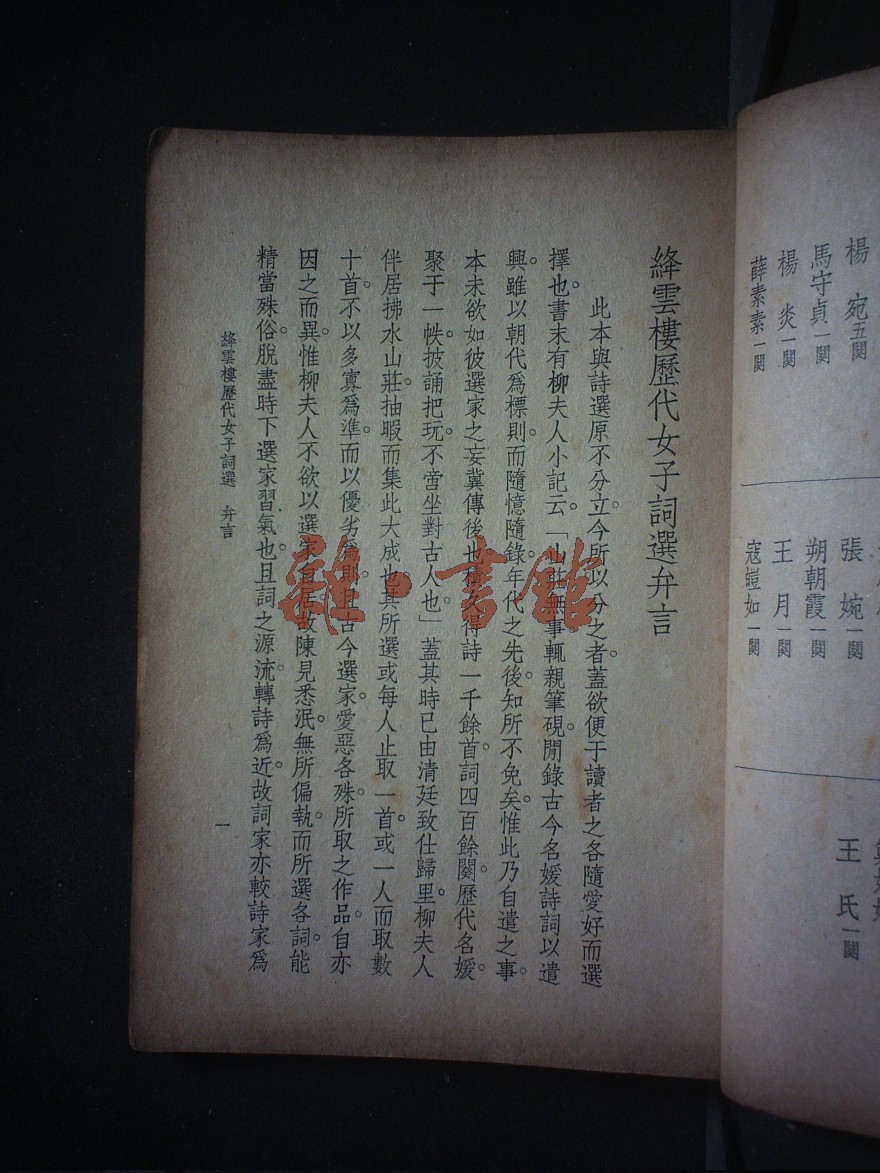 絳雲樓歷代女子詞選弁言
此本與詩選原不分立。今所以分之者。蓋欲便于讀者之各隨愛好而選
擇也。書末有柳夫人小記云。「山莊無事輒親筆硯。閒錄古今名媛詩詞以遣
興。雖以朝代爲標則。而隨憶隨錄。年代之先後。知所不免矣。惟此乃自遣之事。
本未欲如彼選家之妄冀傳後也。積久得詩一千餘首。詞四百餘闋。歷代名媛。
聚于一帙。披誦把玩。不啻坐對古人也」蓋其時已由清廷致仕歸里。柳夫人
伴居拂水山莊。抽暇而集此大成也。其所選或每人止取一首。或一人而取數
十首。不以多寡爲準。而以優劣爲則。且古今選家。愛惡各殊。所取之作品。自亦
因之而異。惟柳夫人不欲以選家自居。故陳見悉泯。無所偏執。而所選各詞。能
精當殊俗。脫盡時下選家習氣也。且詞之源流。轉詩爲近。故詞家亦較詩家爲
絳雲樓歷代女子詞選　弁言
一
楊　宛五闋
馬守貞一闋
楊　炎一闋
薛素素一闋
張　婉一闋
朔朝霞一闋
王　月一闋
寇皚如一闋
王　氏一闋
雜·書館